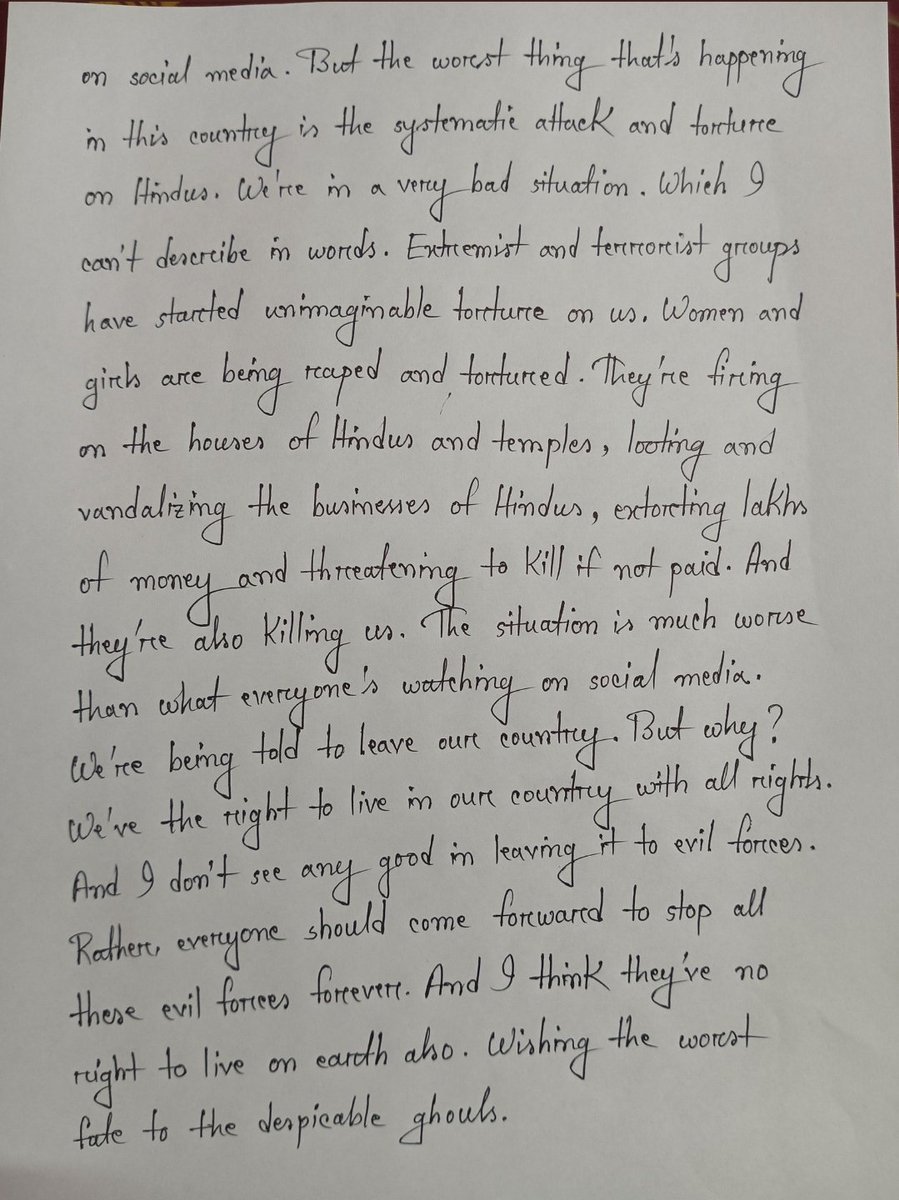 on social media. But the worst thing that's happening
in this country is the systematic attack and torture
on Hindus. We're in a very bad situation. Which I
can't describe in words. Extremist and terrorist groups
have started unimaginable torture on us. Women and
girls are being raped and tortured. They're firing
on the houses of Hindus and temples, looting and
vandalizing the businesses of Hindus, extorting lakhs
of money and threatening to kill if not paid. And
they're also killing us. The situation is much worse
than what everyone's watching on social media.
We're being told to leave our country. But why?
We've the right to live in our country with all rights.
And I don't see any good in leaving it to evil forces.
Rather, everyone should come forward to stop all
these evil forces forever. And I think they've no
right to live on earth also. Wishing the worst
fate to the despicable ghouls.